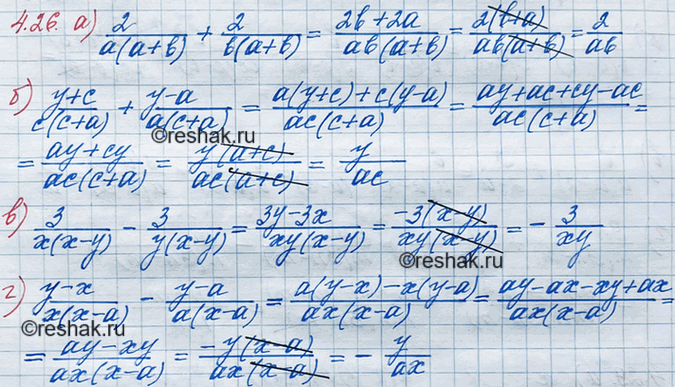 4.26. а) 2/(a(a+b)) + 2/(b(a+b)) = (2b+2a)/(ab(a+b)) = 2(b+a)/(ab(a+b)) = 2/(ab)
б) (y+c)/(c(c+a)) + (y-a)/(a(c+a)) = (a(y+c)+c(y-a))/(ac(c+a)) = (ay+ac+cy-ac)/(ac(c+a)) =
©reshak.ru
= (ay+cy)/(ac(c+a)) = y(a+c)/(ac(a+c)) = y/(ac)
в) 3/(x(x-y)) - 3/(y(x-y)) = (3y-3x)/(xy(x-y)) = -3(x-y)/(xy(x-y)) = - 3/(xy)
©reshak.ru
г) (y-x)/(x(x-a)) - (y-a)/(a(x-a)) = (a(y-x)-x(y-a))/(ax(x-a)) = (ay-ax-xy+ax)/(ax(x-a)) =
©reshak.ru
= (ay-xy)/(ax(x-a)) = -y(x-a)/(ax(x-a)) = - y/(ax)